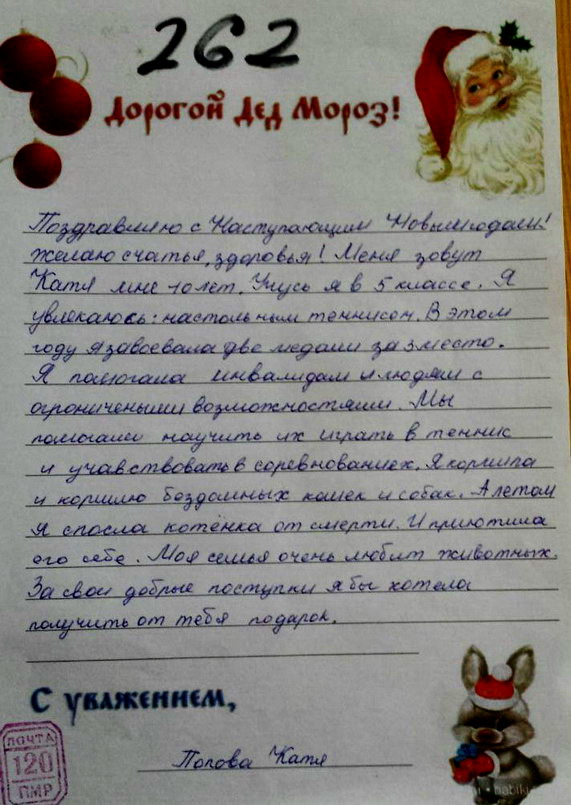 262
Дорогой Дед Мороз!
Поздравляю с Наступающим Новым годом!
желаю счастья, здоровья! Меня зовут
Катя мне 10 лет. Учусь я в 5 классе. Я
увлекаюсь: настольным теннисом. В этом
году я завоевала две медали за 3 место.
Я помогала инвалидам и людям с
ограничеными возможностями. Мы
помогали научить их играть в теннис
и учавствовать в соревнованиех. Я кормила
и кормлю бездомных кошек и собак. А летом
я спосла котёнка от смерти. И приютила
его себе. Моя семья очень любит животных.
За свои добрые поступки я бы хотела
получить от тебя подарок.
С уважением,
Попова Катя
ПОЧТА
120
ПМР